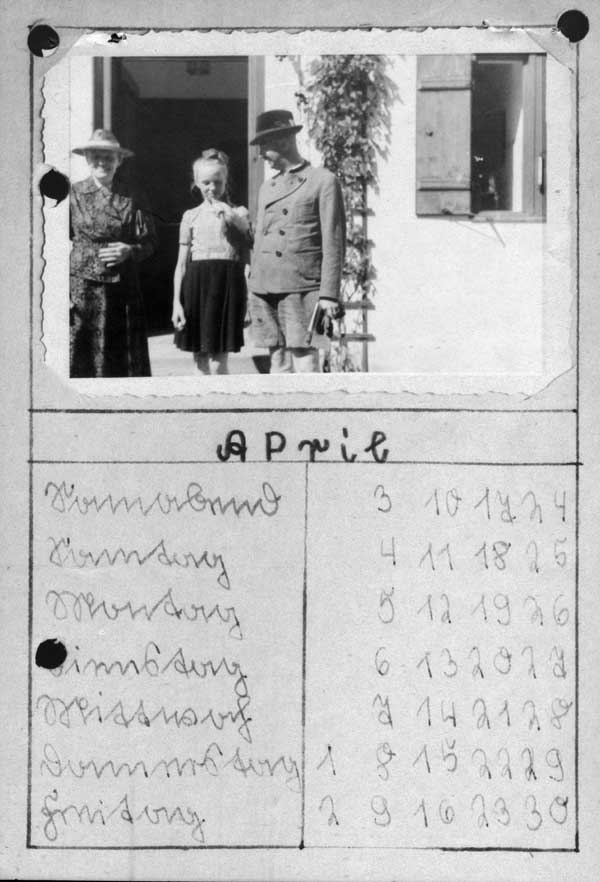 April
Sonnabend 3 10 17 24
Sonntag 4 11 18 25
Montag 5 12 19 26
Dienstag 6 13 20 27
Mittwoch 7 14 21 28
Donnerstag 1 8 15 22 29
Freitag 2 9 16 23 30